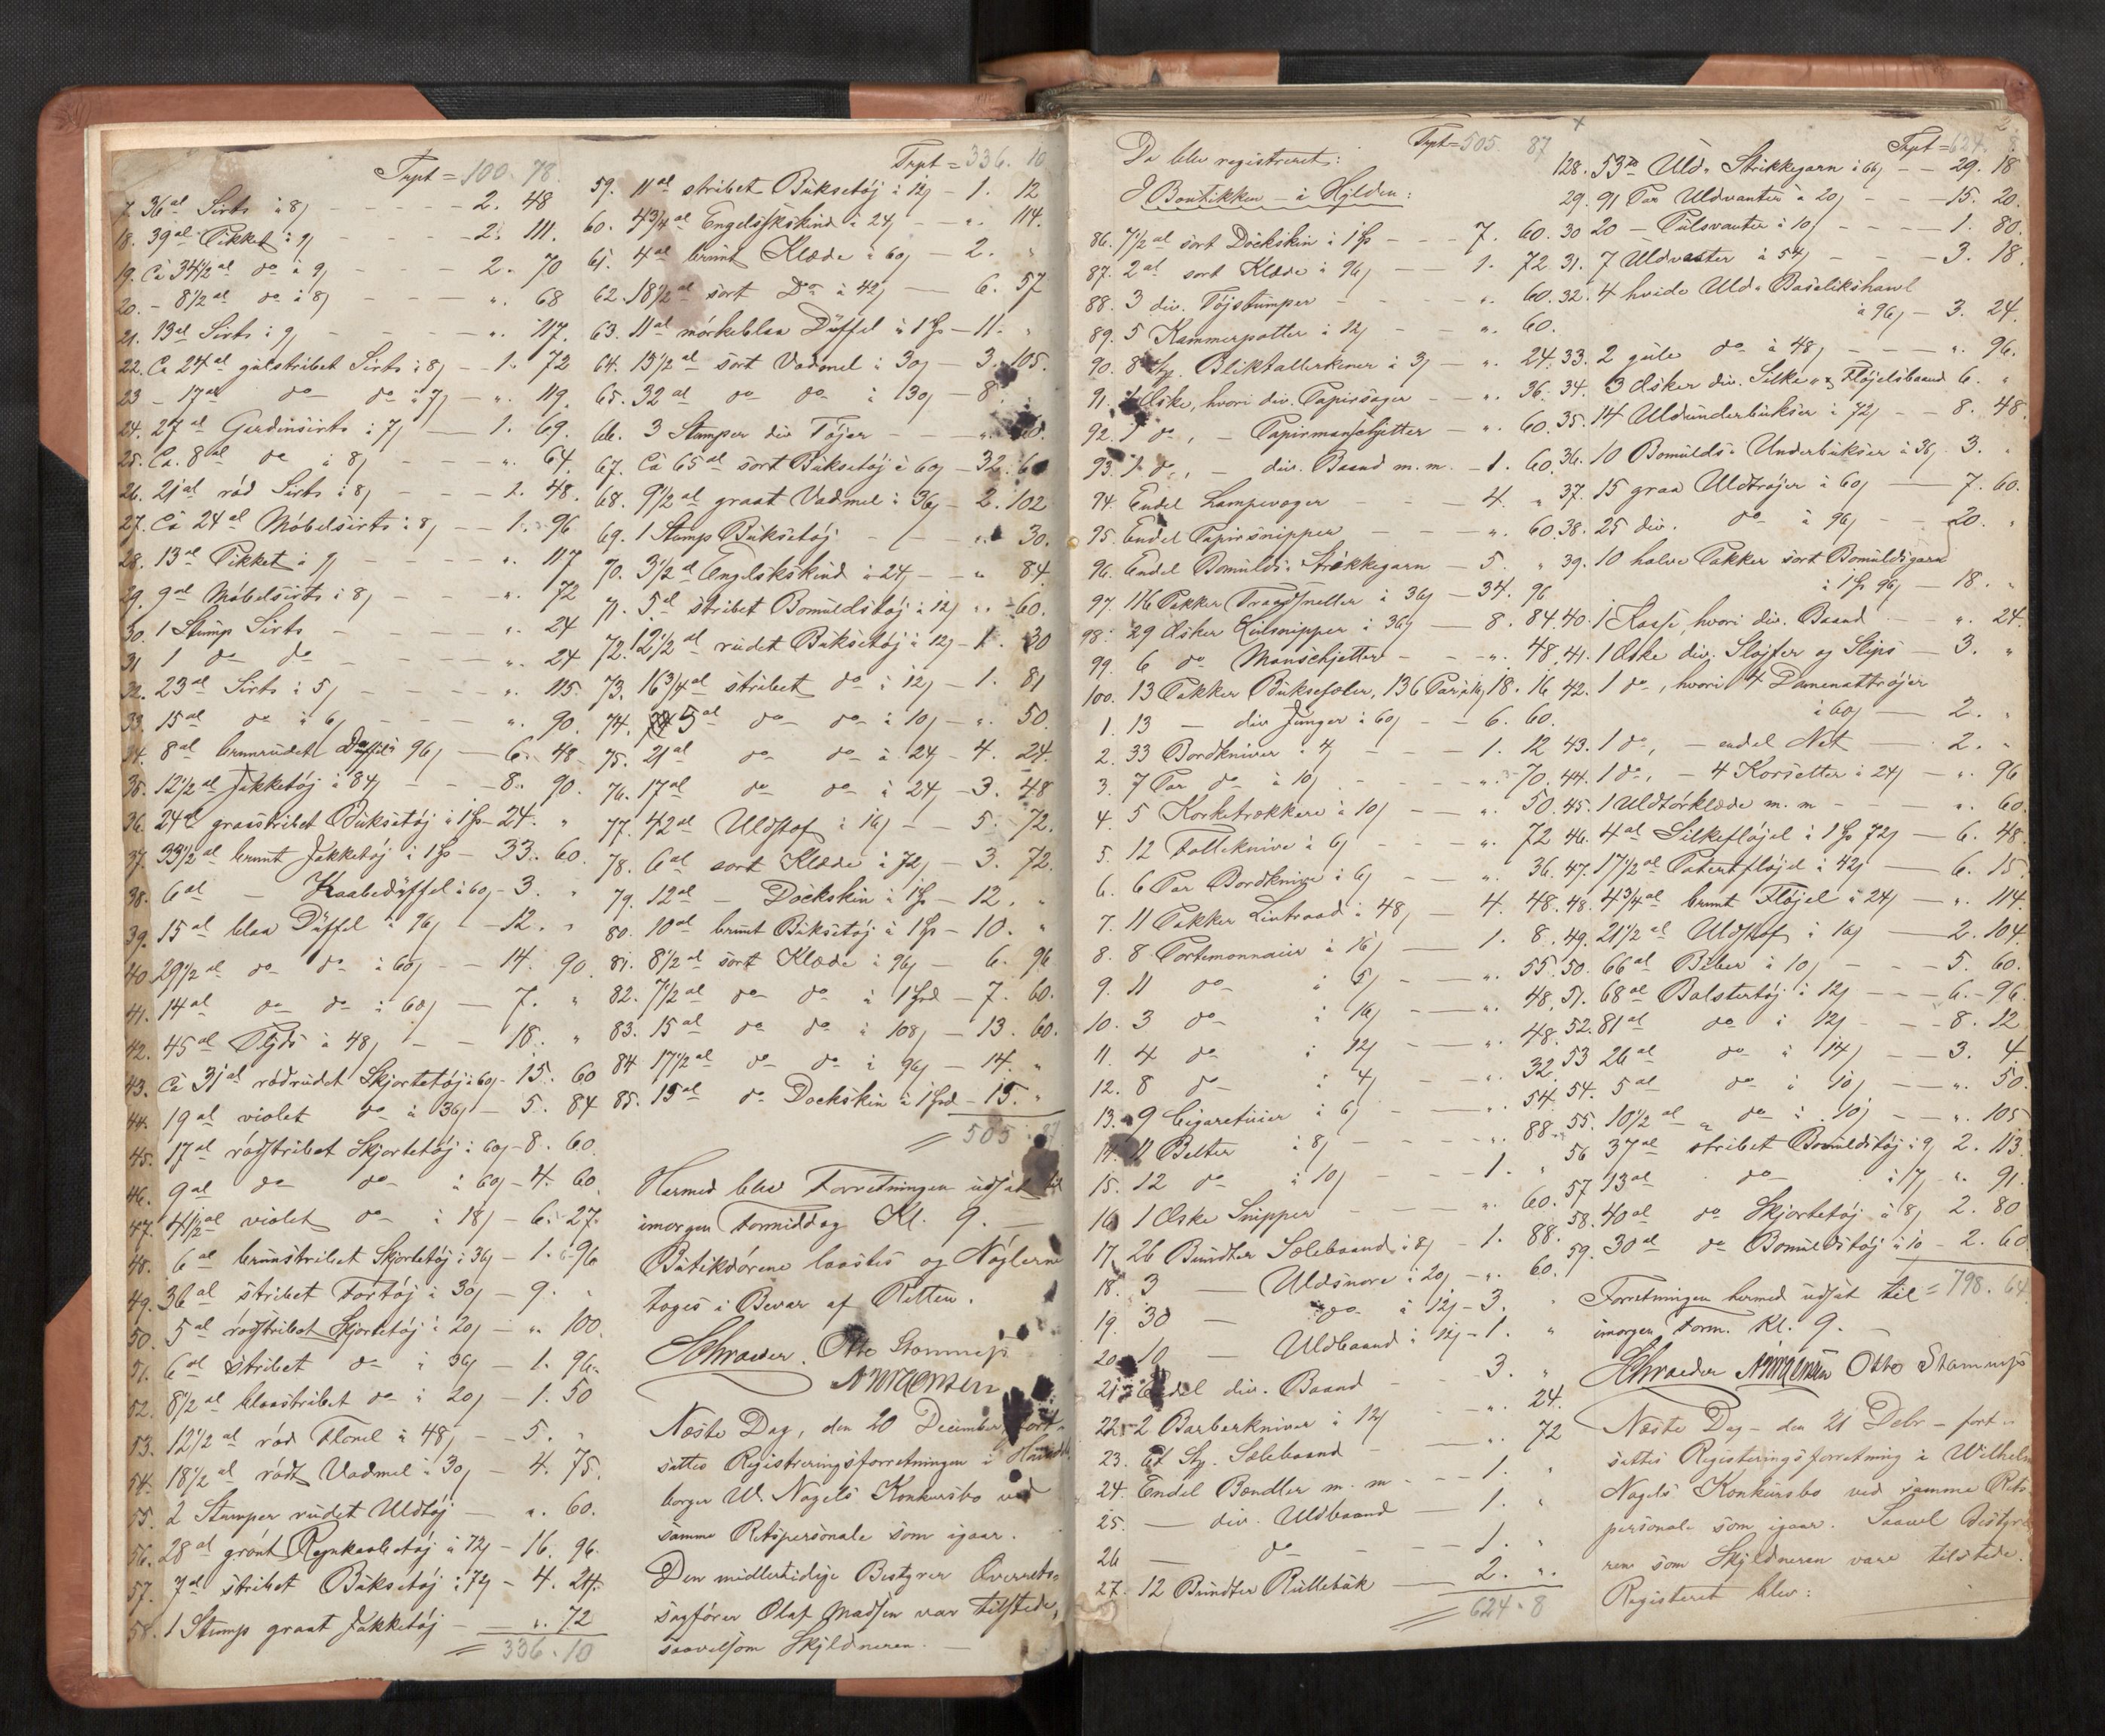 Trpt = 100. 78.
7. 36 al Sirts à 8 ß - - - - - 2. 48
18. 39 al Pikket à 9 ß - - - - 2. 111.
19. Ca 34 1/2 al do à 9 ß - - - 2. 70
20. - 8 1/2 al do à 8 ß - - - ". 68
21. 13 al Sirts à 9 ß - - - - ". 117.
22. Ca 24 al gulstribet Sirts à 8 ß - - 1. 72
23 - 17 al do do à 7 ß - ". 119.
24. 27 al Gardinsirts à 7 ß - 1. 69.
25. Ca. 8 al do à 8 ß - - - ". 64.
26. 21 al rød Sirts à 8 ß - - - 1. 48.
27. Ca 24 al Møbelsirts à 8 ß - - 1. 96
28. 13 al Pikket à 9 ß - - - - ". 117
29. 9 al Møbelsirts à 8 ß - - - ". 72
30. 1 Stump Sirts - - - - ". 24
31 1 do do - - - - ". 24
32. 23 al Sirts à 5 ß - - - - ". 115.
33. 15 al do à 6 ß - - - - ". 90.
34. 8 al brunrudet Düffel à 96 ß - 6. 48
35. 12 1/2 al Jakketøj à 84 ß - - 8. 90.
36. 24 al graastribet Buksetøj à 1 ß - 24. "
37. 33 1/2 al brunt Jakketøj à 1 ß - 33. 60.
38. 6 al - Kaabedüffel à 60 ß - 3. "
39. 15 al blaa Düffel à 96 ß - 12. "
40. 29 1/2 al do do à 60 ß - - 14. 90.
41. 14 al do do à 60 ß - 7. "
42. 45 al Flyds à 48 ß - - 18. "
43. Ca 31 al rødrudet Skjortetøj à 60 ß - 15. 60
44. 19 al violet do à 36 ß - 5. 84
45. 17 al rødstribet Skjortetøj à 60 ß - 8. 60.
46. 9 al do do à 60 ß - 4. 60.
47. 41 1/2 al violet do à 18 ß - 6. 27.
48. 6 al brunstribet Skjortetøj à 36 ß - 1. 96
49. 36 al stribet Fortøj à 30 ß - 9. "
50. 5 al rødstribet Skjortetøj à 20 ß - ". 100.
51. 6 al stribet do à 36 ß - 1. 96.
52. 8 1/2 al blaastribet do à 20 ß - 1. 50
53. 12 1/2 al rød Flonel à 48 ß - - 5. "
54. 18 1/2 al rødt Vadmel à 30 ß - 4. 75.
55. 2 Stumper rudet Uldtøj - ". 60.
56. 28 al grønt Regnkaabetøj à 72 ß - 16. 96.
57. 7 al stribet Buksetøj à 72 ß - 4. 24.
58. 1 Stump graat Jakketøj - - ". 72
= 336. 10
Trpt = 336. 10
59. 11 al stribet Buksetøj à 12 ß - 1. 12
60. 4 3/4 al Engelskskind à 24 ß - - ". 114.
61. 4 al brunt Klæde à 60 ß - 2. "
62. 18 1/2 al sort Do à 42 ß - 6. 57
63. 11 al mørkeblaa Düffel à 1 ß - 11. "
64. 13 1/2 al sort Vadmel à 30 ß - 3. 105.
65. 32 al do do à 30 ß - 8.
66. 3 Stumper div Tøjer - - ".
67. Ca 65 al sort Buksetøj à 60 ß - 32. 60
68. 9 1/2 al graat Vadmel à 36 ß - 2. 102
69. 1 Stump Buksetøj - - ". 30.
70. 3 1/2 al Engelskskind à 24 ß - - ". 84.
71. 5 al stribet Bomuldstøj à 12 ß ". 60.
72. 12 1/2 al rudet Buksetøj à 12 ß - 1. 30
73. 16 3/4 al stribet do à 12 ß - 1. 81
74. 5 al do do à 10 ß - ". 50.
75. 21 al do do à 24 ß - 4. 24.
76. 17 al do do à 24 ß - 3. 48
77. 42 al Uldstof à 16 ß - - 5. 72.
78. 6 al sort Klæde à 72 ß - 3. 72.
79. 12 al - Dockskin à 1 ß - 12. "
80. 10 al brunt Buksetøj à 1 ß - 10. "
81. 8 1/2 al sort Klæde à 96 ß - 6. 96
82. 7 1/2 al do do à 1 ß - 7. 60.
83. 15 al do do à 108 ß - 13. 60.
84 17 1/2 al do do à 96 ß - 14. "
85. 15 al do Dockskin à 1 ß - 15. "
= 505. 87
Hermed blev Forretningen udsat til
imorgen Formiddag Kl. 9. -
Butikdørene laastes og Nøglerne
toges i Bevar af Retten.
Schraeder. Otto Stamnjs
N Jørgensen
Næste Dag, den 20 December fort-
sattes Registreringsforretningen i Handels-
borger W. Nagels Konkursbo ved
samme Retspersonale som igaar.
Den midlertidige Bestyrer Overrets-
sagfører Olaf Madsen var tilstede,
saavelsom Skyldneren. -
Da blev registreret: Trpt = 505. 87
I Boutikken - i Hylden:
86. 7 1/2 al sort Dockskin à 1 ß - - - 7. 60.
87. 2 al sort Klæde à 96 ß - 1. 72
88. 3 div. Tøjstumper - - - - ". 60.
89. 5 Kammerpotter à 12 ß - - ". 60.
90. 8 Stk. Bliktallerkener à 3 ß - ". 24.
91. 1 Æske, hvori div. Papirsager - - ". 36.
92. 1 do, - Papirmanschetter - ". 60.
93. 1 do, - div. Baand m. m. - 1. 60.
94. Endel Lampevæger - - - 4. "
95. Endel Papirsnipper - - - ". 60
96. Endel Bomulds-Strikkegarn - 5. "
97. 116 Pakker Traadsneller à 36 ß - 34. 96
98. 29 Æsker Linsnipper à 36 ß - 8. 84.
99. 6 do Manschetter - - ". 48
100. 13 Pakker Buksesøler, 136 Par à 16 ß 18. 16
1. 13 - div Junger à 60 ß - - 6. 60.
2. 33 Bordkniver à 4 ß - - - 1. 12
3. 7 Par do à 10 ß - - - - ". 70.
4. 5 Korketrækkere à 10 ß - - ". 50.
5. 12 Folleknive à 6 ß - - - ". 72
6. 6 Par Bordknive à 6 ß - - ". 36.
7. 11 Pakker Lintraad à 48 ß - 4. 48.
8. 8 Portemonnaier à 16 ß - 1. 8.
9. 11 do à 5 ß - - ". 55.
10. 3 do à 16 ß - - ". 48.
11. 4 do à 12 ß - - ". 48.
12. 8 do à 4 ß - - ". 32
13. 9 Cigaretuier à 6 ß - - ". 54.
14. 11 Belter à 8 ß - - - - ". 88
15. 12 do à 10 ß - - - 1. "
16 1 Æske Snipper - - - ". 60.
17 26 Bundter Sælebaand à 8 ß - 1. 88.
18. 3 - Uldsnore à 20 ß - ". 60.
19. 30 - do à 12 ß - 3. "
20. 10 - Uldbaand à 12 ß - 1. "
21. Endel div. Baand - - - 3. "
22 - 2 Barberkniver à 12 ß ". 24.
23. Et Stk. Sælebaand - - ". 72
24. Endel Bændler m. m - - - 1. "
25. - div. Uldbaand - 1. "
26 - do - - - 1. "
27. 12 Bundter Rullebuk - 2. "
= 624. 8
Trpt = 624. 8
128. 53 Uld-Strikkegarn à 66 ß - - 29. 18
29. 91 Par Uldvanter à 20 ß - - - 15. 20.
30 20 - Pulsvanter à 10 ß - - - - 1. 80.
31. 7 Uldvester à 54 ß - - - 3. 18.
32. 4 hvide Uld-Baselikshawl
à 96 ß - 3. 24.
33. 2 gule do à 48 ß - - - ". 96.
34. 3 Æsker div. Silke- & Fløjelsbaand 6. "
35. 14 Uldunderbukser à 72 ß - - 8. 48
36. 10 Bomulds-Underbukser à 36 ß 3. "
37. 15 graa Uldtrøjer à 60 ß - 7. 60.
38. 25 div. do à 96 ß - - 20. "
39. 10 halve Pakker sort Bomuldsgarn
à 1 ß 96 ß - 18. "
40. 1 Kasse, hvori div. Baand - ". 24.
41. 1 Æske div. Sløjfer og Slips - 3. "
42. 1 do, hvori 4 Damenattrøjer
à 60 ß - 2. "
43. 1 do, - endel Net - 2. "
44. 1 do, - 4 Korsetter à 24 ß - ". 96
45. 1 Uldtørklæde m. m - - - ". 60.
46. 4 al Silkefløjel à 1 ß 72 ß - 6. 48.
47. 17 1/2 al Patentfløjel à 42 ß - 6. 15
48. 4 3/4 al brunt Fløjel à 24 ß - ". 114.
49. 21 1/2 al Uldstof à 16 ß - 2. 104.
50. 66 al Biber à 10 ß - - - 5. 60.
51. 68 al Bolstertøj à 12 ß - - - 6. 96.
52. 81 al do à 12 ß - - - 8. 12
53 26 al do à 14 ß - - 3. 4.
54. 5 al do à 10 ß - - ". 50.
55. 10 1/2 al do à 10 ß - - ". 105
56 37 al stribet Bomuldstøj à 9 ß 2. 113.
57 13 al do à 7 ß - ". 91.
58. 40 al do Skjortetøj à 8 ß 2. 80
59. 30 al do Bomuldstøj à 10 - 2. 60
Forretningen hermed udsat til = 798. 64
imorgen Form. Kl. 9. -
Schraeder N Jørgensen Otto Stamnjs
Næste Dag - den 21 Debr - fort-
sattes Registeringsforretning i Wilhelm
Nagels Konkursbo ved samme Rets-
personale som igaar. Saavel Bestyre-
ren som Skyldneren vare tilstede.
Registeret blev: